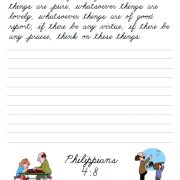 things are pure, whatsoever things are
lovely, whatsoever things are of good
report; if there be any virtue, if there be
any praise, think on these things.
Philippians
4:8